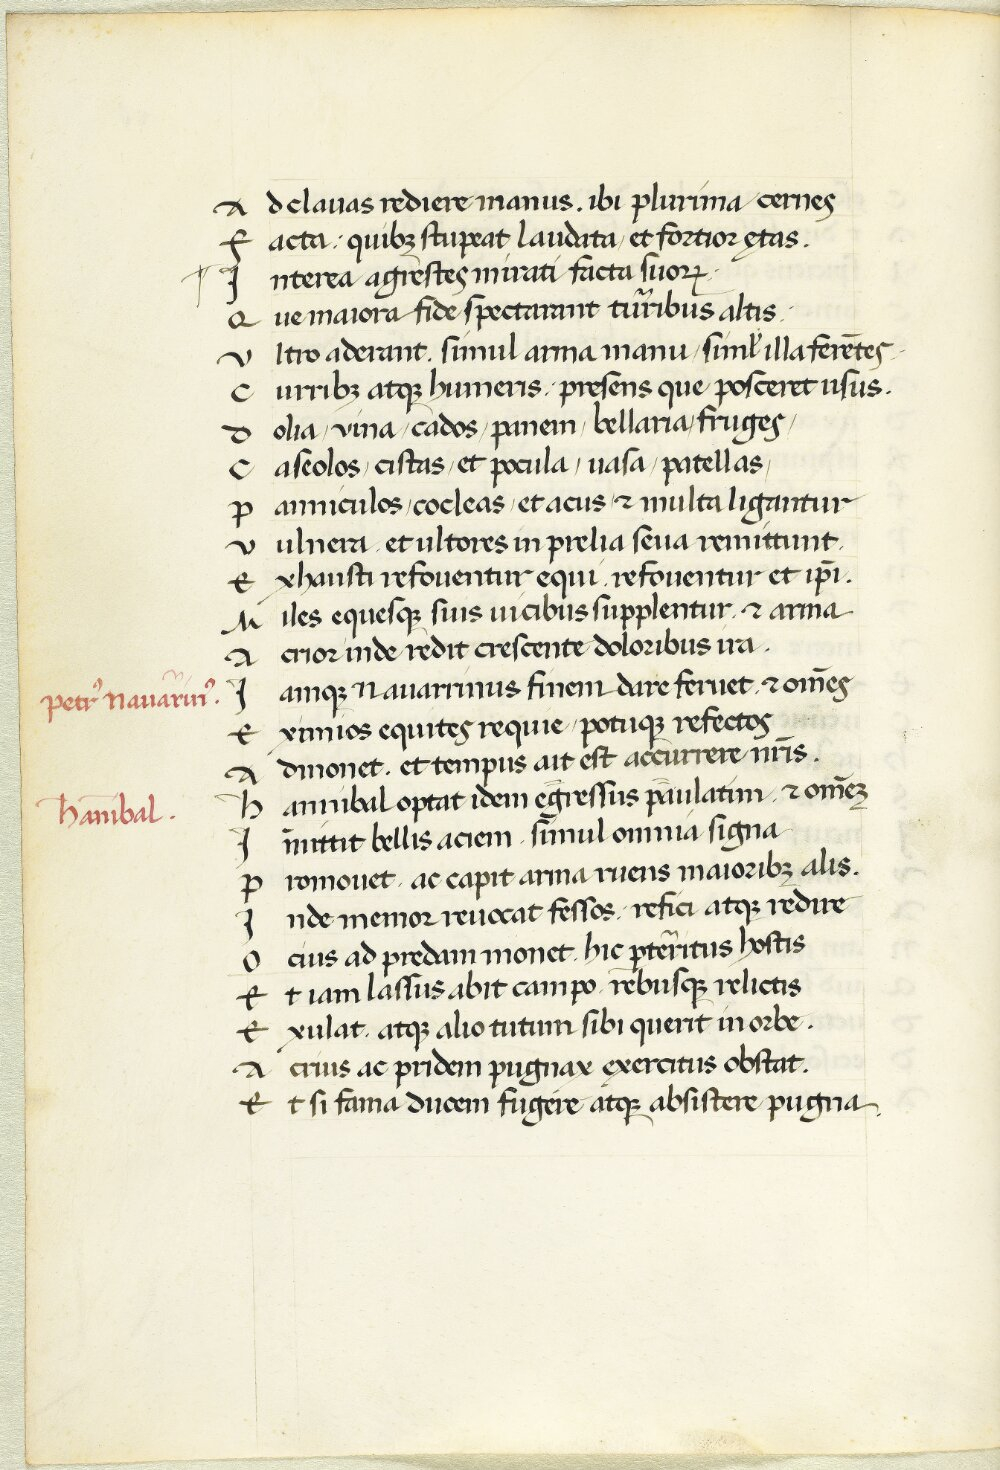 Ad clauas rediere manus. ibi plurima cernes
Facta. quibꝫ stupeat laudata, et fortior ętas.
Interea agrestes mirati facta suoꝝ.
Que maiora fide spectarant turribus altis.
Vltro aderant. simul arma manu, siml' illa ferẽtes.
Curribꝫ atqꝫ humeris. presens que posceret usus.
Dolia, vina, cados, panem, bellaria, fruges,
Caseolos, cistas, et pocula, uasa, patellas,
Panniculos, cocleas, et acus, ⁊ multa ligantur
Vulnera. et ultores in prelia seua remittunt.
Exhausti refouentur equi. refouentur et ip̃i.
Miles equesqꝫ suis uicibus supplentur. ⁊ arma
Acrior inde redit crescente doloribus ira.
petrꝰ Nauarrinꝰ.
Iamqꝫ nauarrinus finem dare feruet. ⁊ om̃es
Eximios equites requie, potuqꝫ refectos
Admonet. et tempus ait est accurrere nr̃is.
hanibal.
Hannibal optat idem egressus paulatim. ⁊ om̃eꝫ
Im̃ittit bellis aciem. simul omnia signa
Promouet. ac capit arma ruens maioribꝫ alis.
Inde memor reuocat fessos. refici atqꝫ redire
Ocius ad predam monet. hic pteritus hostis
Et iam lassus abit campo. rebusqꝫ relictis
Exulat. atqꝫ alio tutum sibi querit in orbe.
Acrius ac pridem pugnax exercitus obstat.
Et si fama ducem fugere atqꝫ absistere pugna.